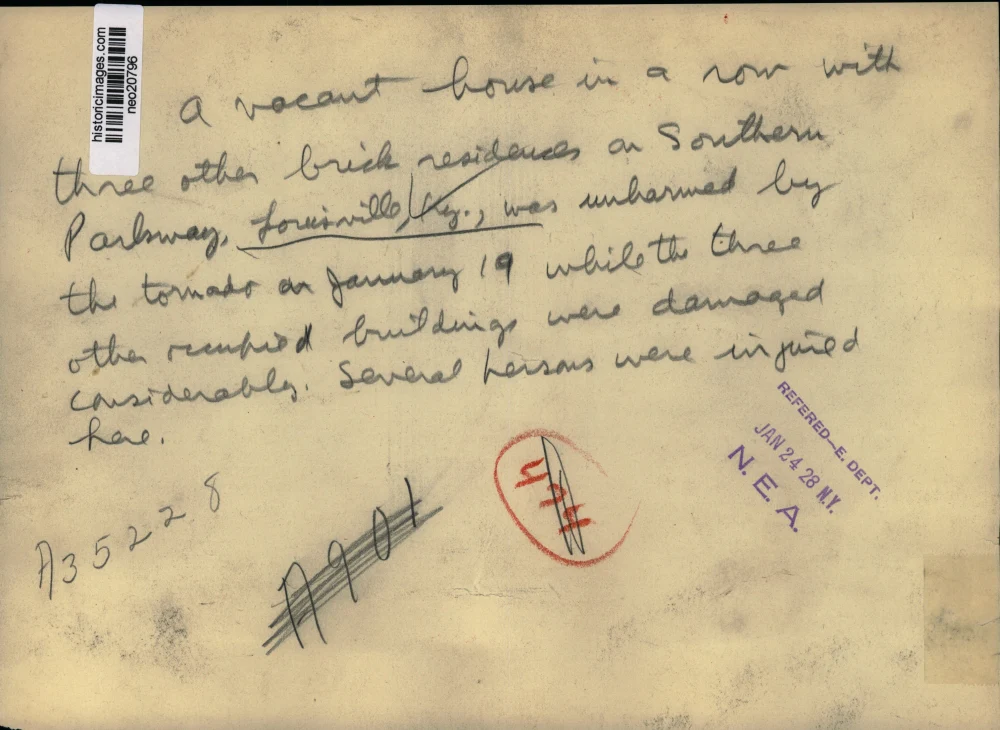 historicimages.com
neo20796
A vacant house in a row with
three other brick residences on Southern
Parkway, Louisville, Ky., was unharmed by
the tornado on January 19 while the three
other occupied buildings were damaged
considerably. Several persons were injured
here.
REFERED-E. DEPT.
JAN 24 28 N.Y.
N. E. A.
A35228